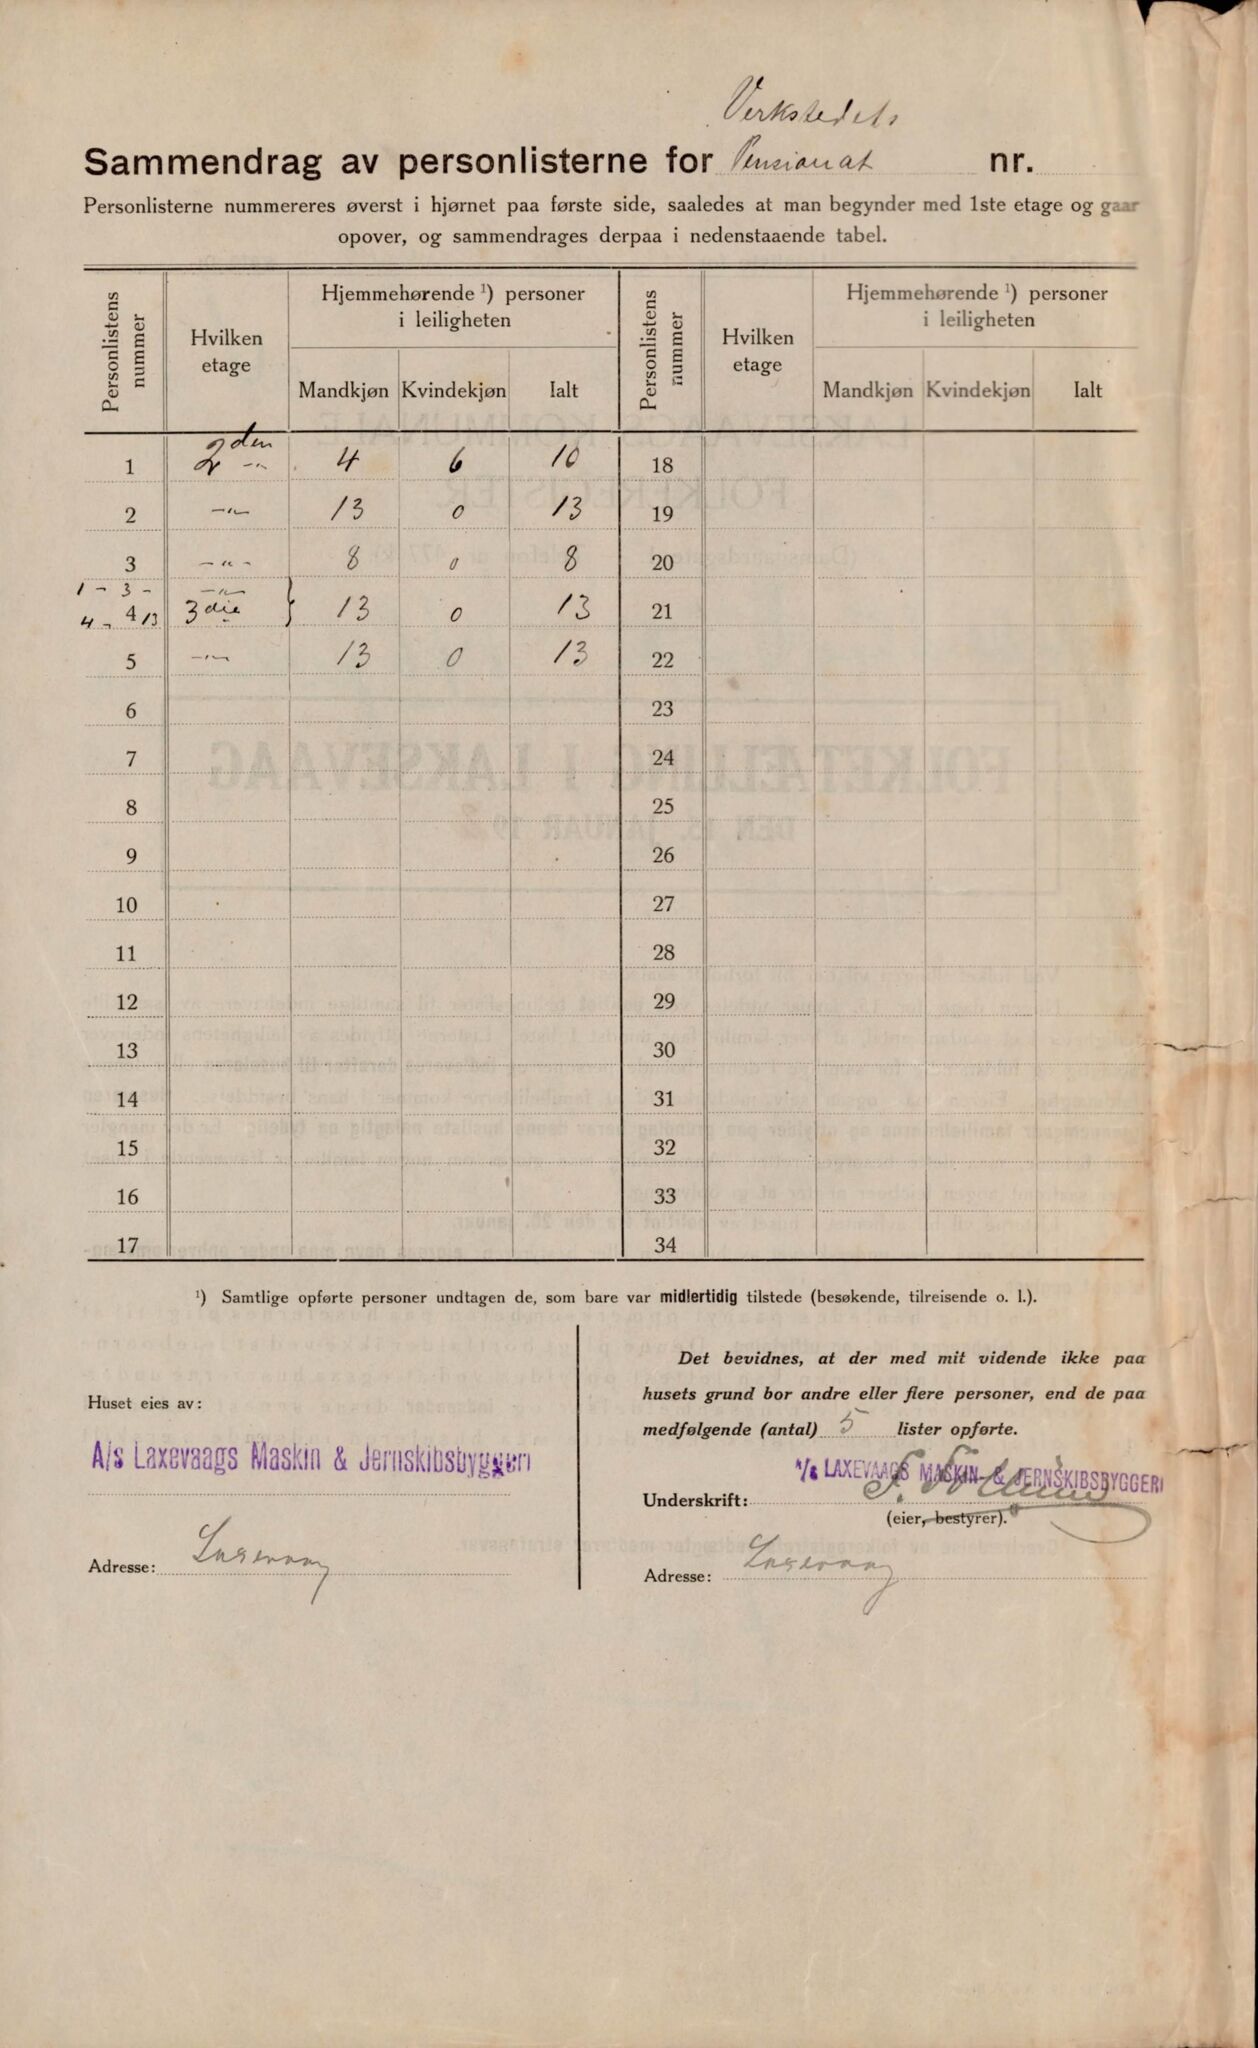 Verkstedets
Sammendrag av personlisterne for Pensionat nr.
Personlisterne nummereres øverst i hjørnet paa første side, saaledes at man begynder med 1ste etage og gaar
opover, og sammendrages derpaa i nedenstaaende tabel.
Personlistens nummer
Hvilken etage
Hjemmehørende ¹) personer i leiligheten
Mandkjøn Kvindekjøn Ialt
Personlistens nummer
Hvilken etage
Hjemmehørende ¹) personer i leiligheten
Mandkjøn Kvindekjøn Ialt
1 2den -"- 4 6 10 18
2 -"- 13 0 13 19
3 -"- 8 0 8 20
1 - 3 - -"-
4 - 13 4 3die } 13 0 13 21
5 -"- 13 0 13 22
6 23
7 24
8 25
9 26
10 27
11 28
12 29
13 30
14 31
15 32
16 33
17 34
¹) Samtlige opførte personer undtagen de, som bare var midlertidig tilstede (besøkende, tilreisende o. l.).
Huset eies av:
A/s Laxevaags Maskin & Jernskibsbyggeri
Adresse: Laxevaag
Det bevidnes, at der med mit vidende ikke paa
husets grund bor andre eller flere personer, end de paa
medfølgende (antal) 5 lister opførte.
A/s LAXEVAAGS MASKIN- & JERNSKIBSBYGGERI
Underskrift:
(eier, bestyrer).
Adresse: Laxevaag
FOLKETÆLLING I LAKSEVAAG